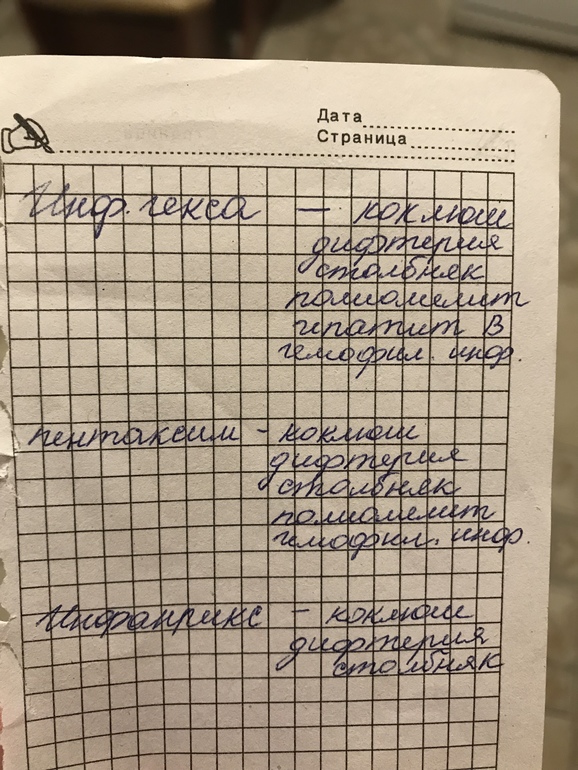 Дата
Страница
Инф. гекса — коклюш
дифтерия
столбняк
полиомелит
гпатит В
гемофил. инф.
пентаксим - коклюш
дифтерия
столбняк
полиомелит
гемофил. инф.
Инфанрикс - коклюш
дифтерия
столбняк